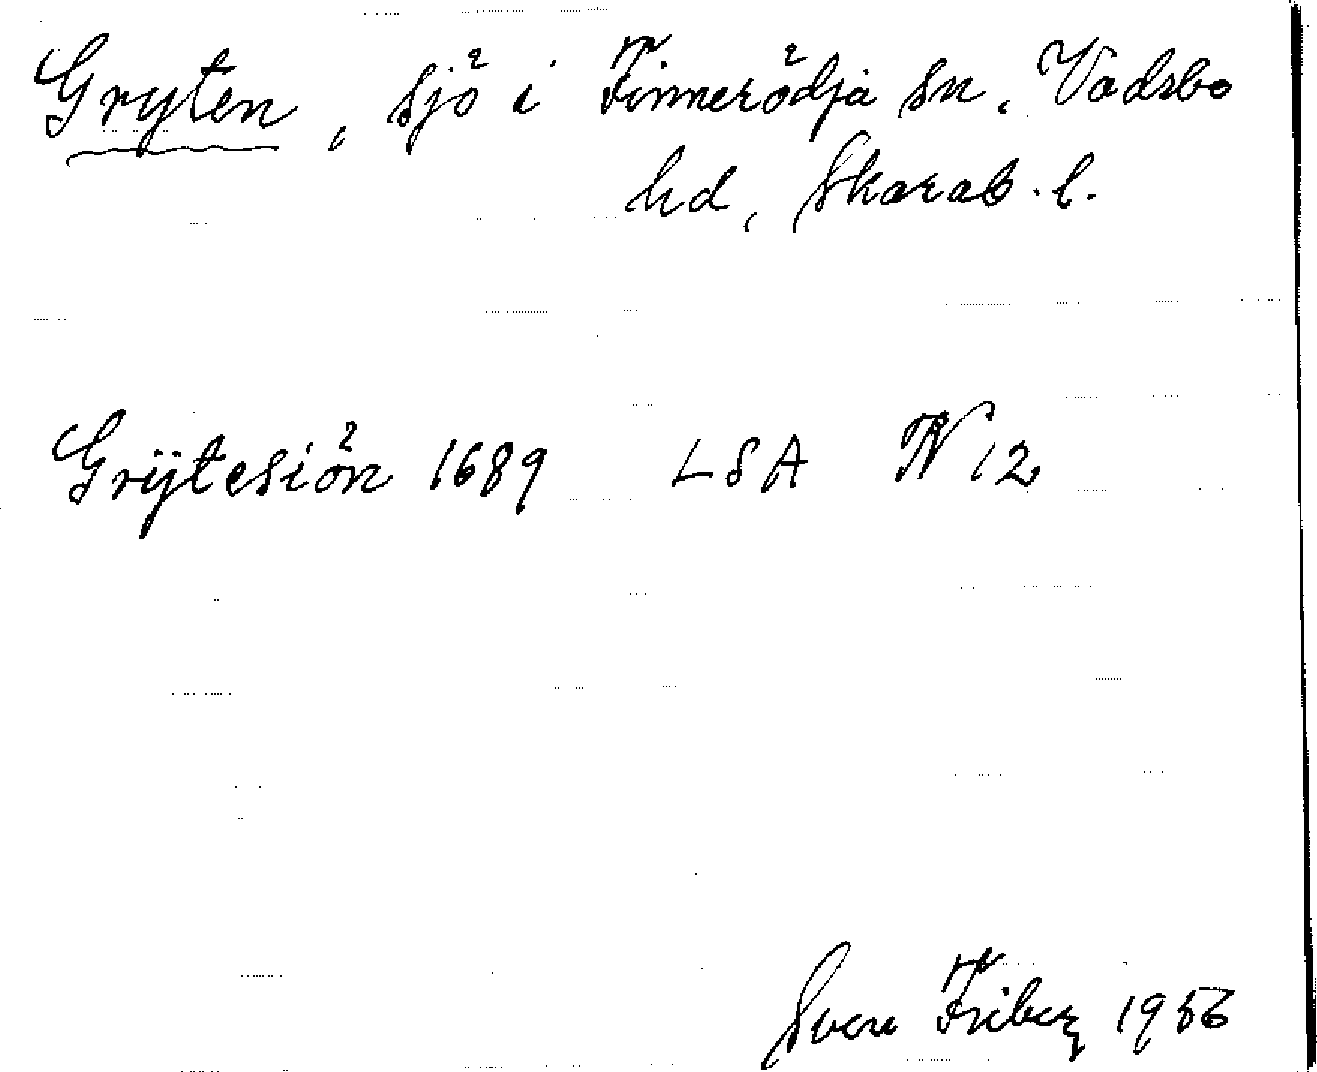 Gryten, sjö i Finnerödja sn. Vadsbo
hd, Skarab. l.
Grÿtesiön 1689 LSA N 12
Sven Friberg 1956